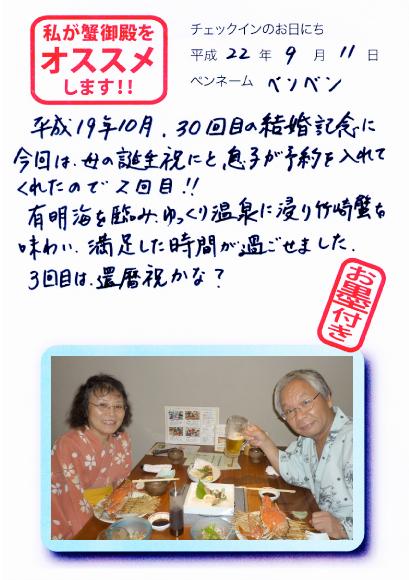 私が蟹御殿を
オススメ
します!!
チェックインのお日にち
平成 22 年 9 月 11 日
ペンネーム ベンベン
平成19年10月、30回目の結婚記念に
今回は、母の誕生祝にと、息子が予約を入れて
くれたので2回目!!
有明海を臨み、ゆっくり温泉に浸り竹崎蟹を
味わい、満足した時間が過ごせました。
3回目は、還暦祝かな?
お墨付き